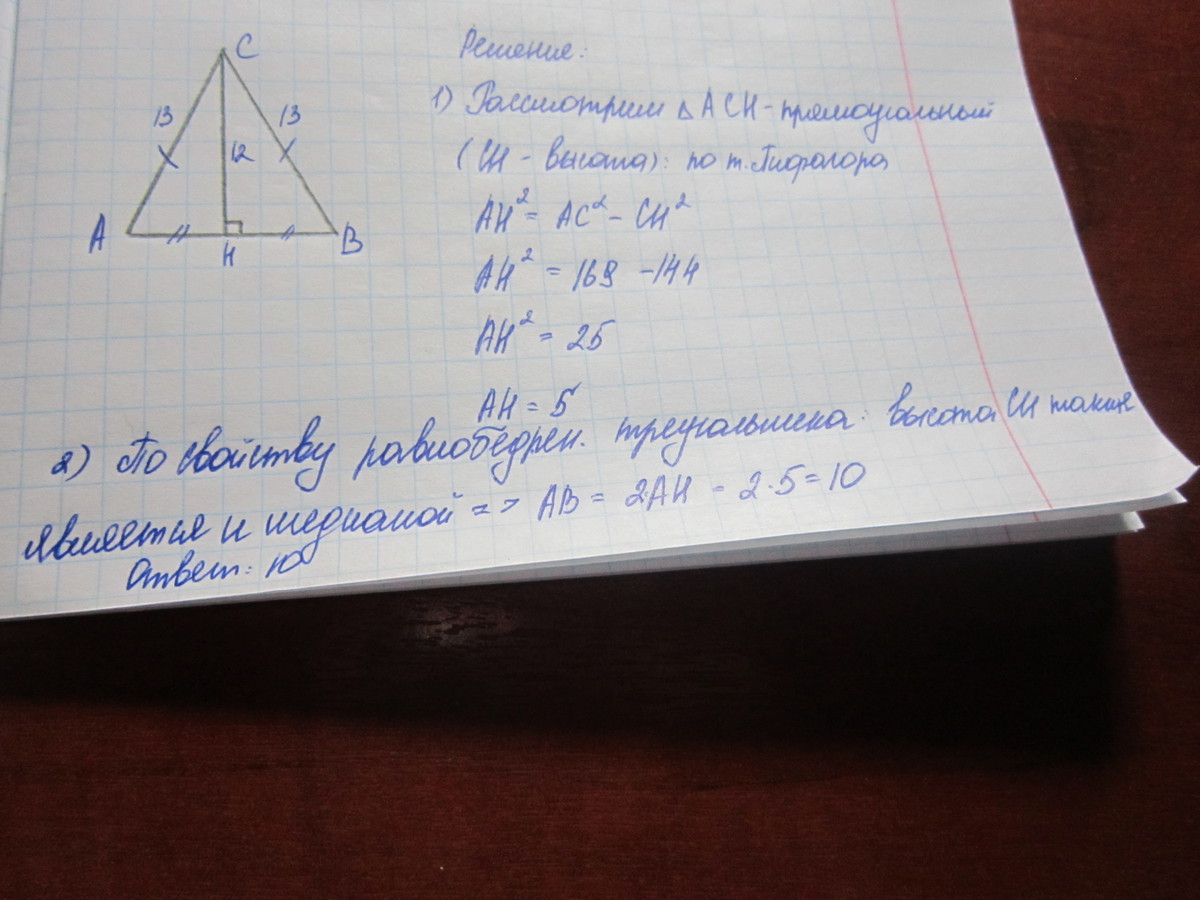 C
13
13
12
A
H
B
Решение:
1) Рассмотрим △ ACH - прямоугольный
(CH - высота): по т. Пифагора
AH² = AC² - CH²
AH² = 169 - 144
AH² = 25
AH = 5
2) По свойству равнобедрен. треугольника: высота CH также
является и медианой => AB = 2AH = 2·5=10
Ответ: 10